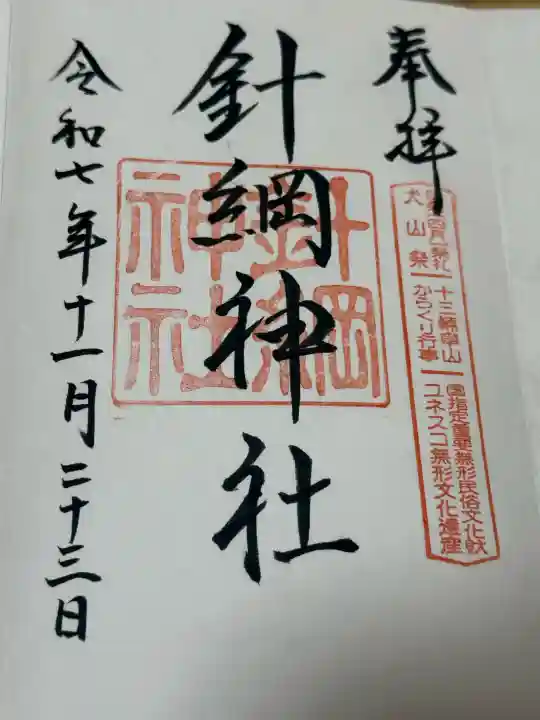 奉拝
犬山祭
十三輌車山
からくり行事
国指定重要無形民俗文化財
ユネスコ無形文化遺産
針綱神社
針綱
神社
令和七年十一月二十三日